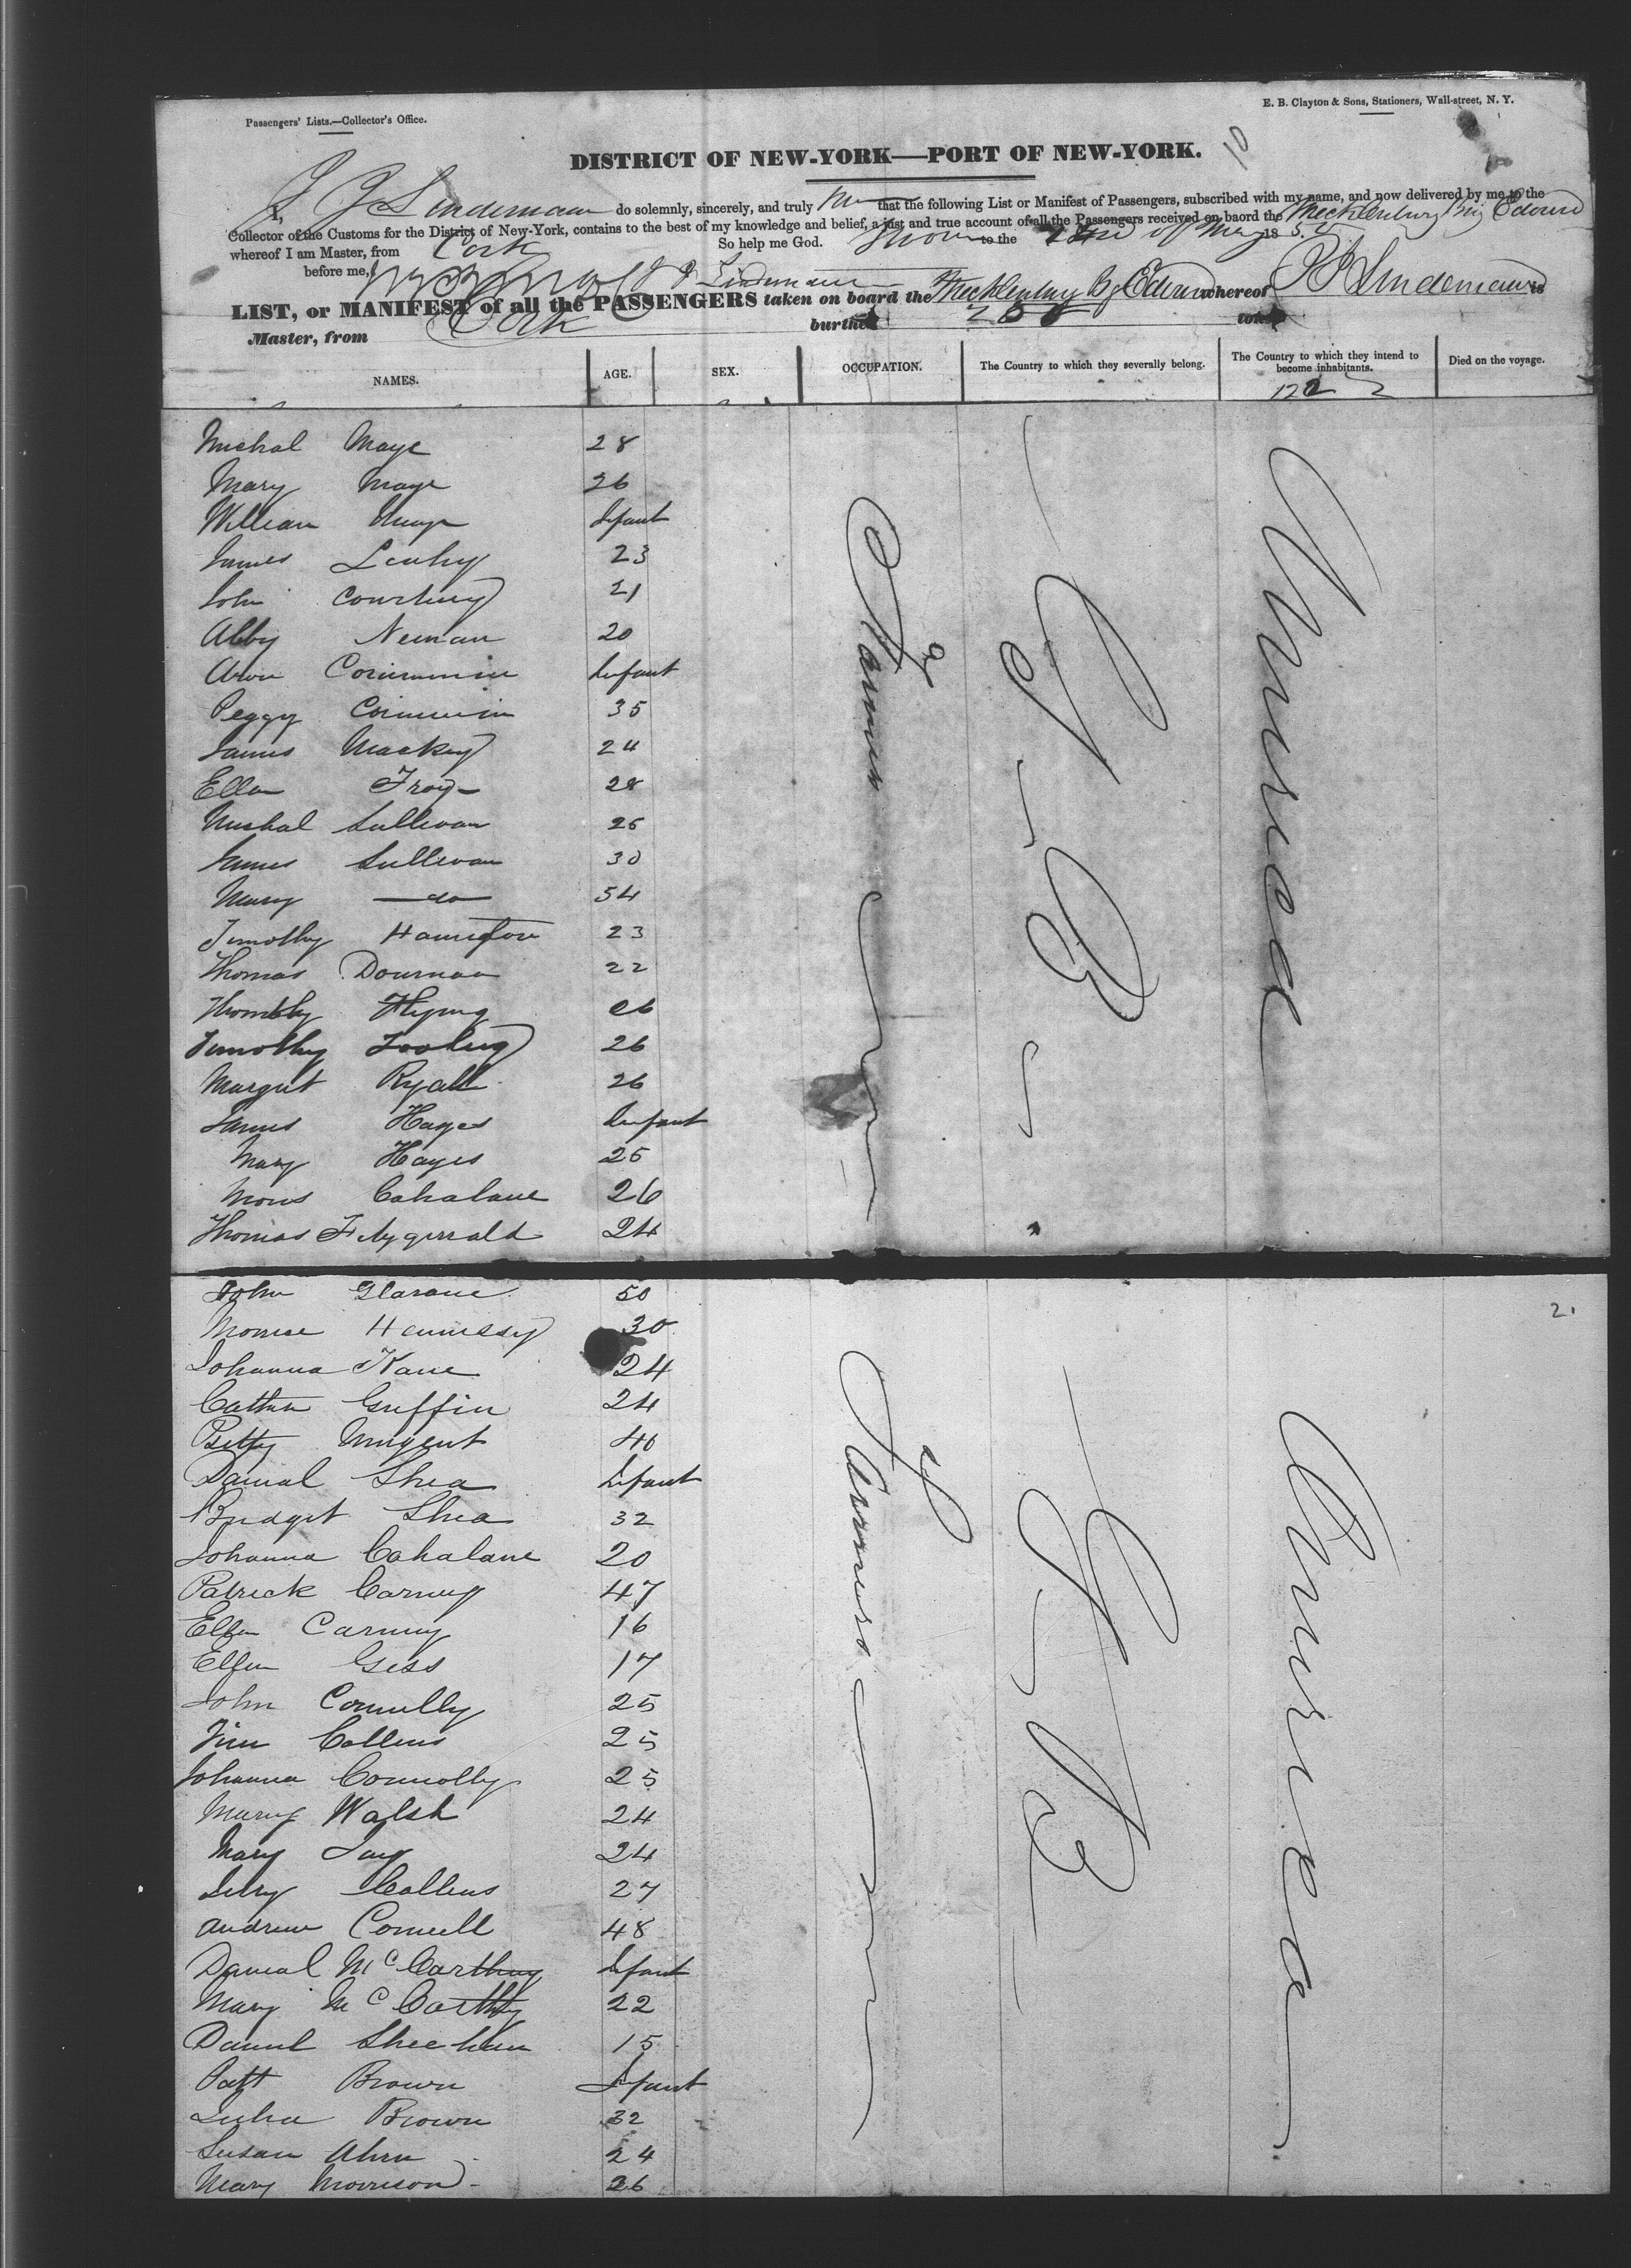 Passengers' Lists.—Collector's Office.
E. B. Clayton & Sons, Stationers, Wall-street, N. Y.
10
DISTRICT OF NEW-YORK—PORT OF NEW-YORK.
I, J J Lindemann do solemnly, sincerely, and truly that the following List or Manifest of Passengers, subscribed with my name, and now delivered by me to the
Collector of the Customs for the District of New-York, contains to the best of my knowledge and belief, a just and true account of all the Passengers received on baord the Mecklenburg Brig Edward
whereof I am Master, from Cork So help me God. to the of May 18
before me, Lindemann
LIST, or MANIFEST of all the PASSENGERS taken on board the Mecklenburg Bg Edward whereof Lindemann is
Master, from Cork burthen tons
NAMES. AGE. SEX. OCCUPATION. The Country to which they severally belong. The Country to which they intend to become inhabitants. Died on the voyage.
122
Michal Maye 28
Mary Maye 26
William Maye Infant
James Leahy 23
John Courtney 21
Abby Neenan 20
Infant
Peggy 35
James Mackey 24
Ellen Troy 28
Michal Sullivan 25
James Sullivan 30
Mary do 54
Timothy 23
Thomas Dournan 22
Flyung
Timothy Toohig 26
Margret Ryall 26
James Hayes Infant
Mary Hayes 25
Morris Cahalane 26
Thomas Fitzgerrald 24
Farmers
G B
America
2.
John 50
Hennessy 30
Johanna Kane 24
Cathrn Griffin 24
Betty Nugent 40
Danial Shea Infant
Bridget Shea 32
Johanna Cahalane 20
Patrick Carney 47
Ellen Carney 16
Ellen Gess 17
John Connolly 25
Tim Collins 25
Johanna Connolly 25
Mary Walsh 24
Mary 24
Jerry Collins 27
Andrew Connell 48
Danial McCarthy Infant
Mary McCarthy 22
Daniel Sheehan 15
Patt Brown Infant
Julia Brown 32
Susan Ahrn 24
Mary Morrison 26
Farmers
G B
America